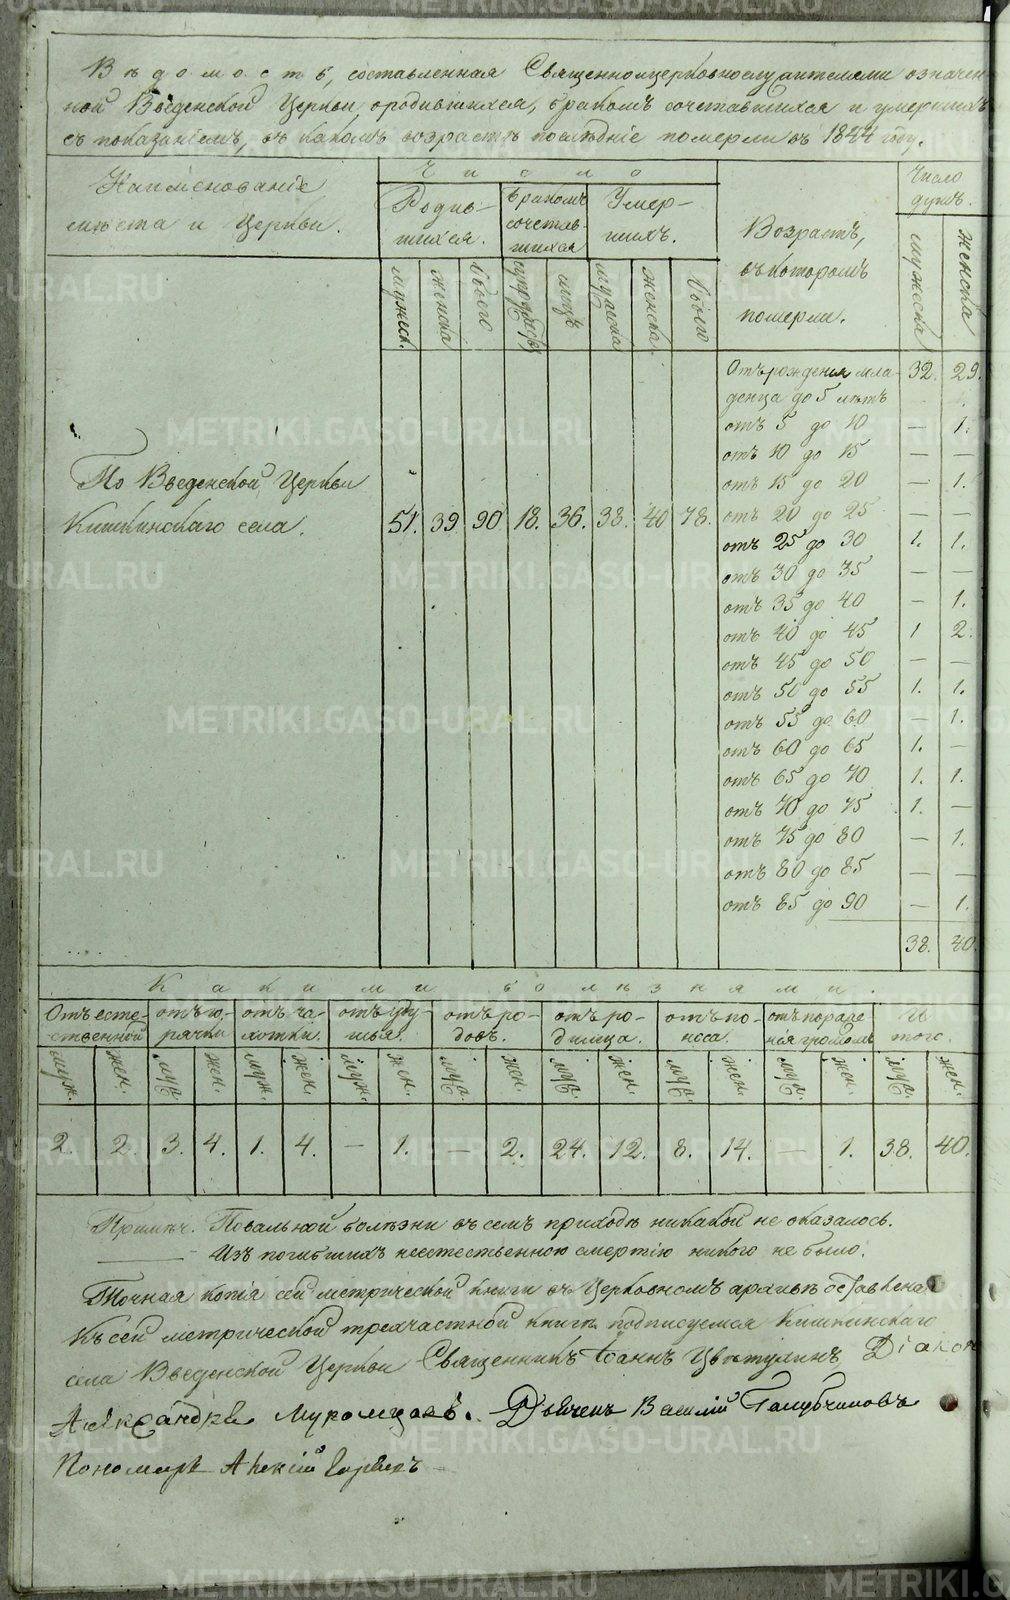 Вѣдомость, составленная Священноцерковнослужителями означен-
ной Введенской Церкви, о родившихся, бракомъ сочетавшихся и умершихъ
съ показаніемъ, въ какомъ возрастѣ послѣдніе померли въ 1844 году.
Наименованіе
мѣста и Церкви.
Число
Родив-
шихся.
Бракомъ
сочетав-
шихся
Умер-
шихъ.
Возрастъ,
въ которомъ
померли.
Число
душъ.
мужеск.
женска
Обоего
лицъ
мужеска
женска.
Обоего
мужеска
женска
По Введенской Церкви
Кишкинскаго села.
51. 39. 90. 18. 36. 38. 40 78.
Отъ рожденія мла-
денца до 5 лѣтъ 32. 29.
отъ 5 до 10 — 1.
отъ 10 до 15 — —
отъ 15 до 20 — 1.
отъ 20 до 25 — —
отъ 25 до 30 1. 1.
отъ 30 до 35 — —
отъ 35 до 40 — 1.
отъ 40 до 45 1 2.
отъ 45 до 50 — —
отъ 50 до 55 1. 1.
отъ 55 до 60 — 1.
отъ 60 до 65 1. —
отъ 65 до 70 1. 1.
отъ 70 до 75 1. —
отъ 75 до 80 — 1.
отъ 80 до 85 — —
отъ 85 до 90 — 1.
38. 40.
Какими болѣзнями.
Отъ есте-
ственной
отъ го-
рячки
отъ ча-
хотки.
отъ уду-
шья.
отъ ро-
довъ.
отъ ро-
димца.
отъ по-
носа.
отъ пораже-
нія громомъ
И-
того.
муж. жен. муж. жен. муж. жен. муж. жен. муж. жен. муж. жен. муж. жен. муж. жен. муж. жен.
2. 2. 3. 4. 1. 4. — 1. — 2. 24. 12. 8. 14. — 1. 38. 40.
Примѣч. Повальной болѣзни въ семъ приходѣ никакой не оказалось.
— Изъ погибшихъ неестественною смертію никого не было.
Точная копія сей метрической книги въ Церковномъ архивѣ оставлена
Къ сей метрической трехчастной книгѣ подписуемся Кишкинскаго
села Введенской Церкви Священникъ Іоаннъ Цвѣтухинъ, Діаконъ
Александръ Муромцовъ. Дьячекъ Василій Голубчиковъ
Пономарь Алексій
METRIKI.GASO-URAL.RU